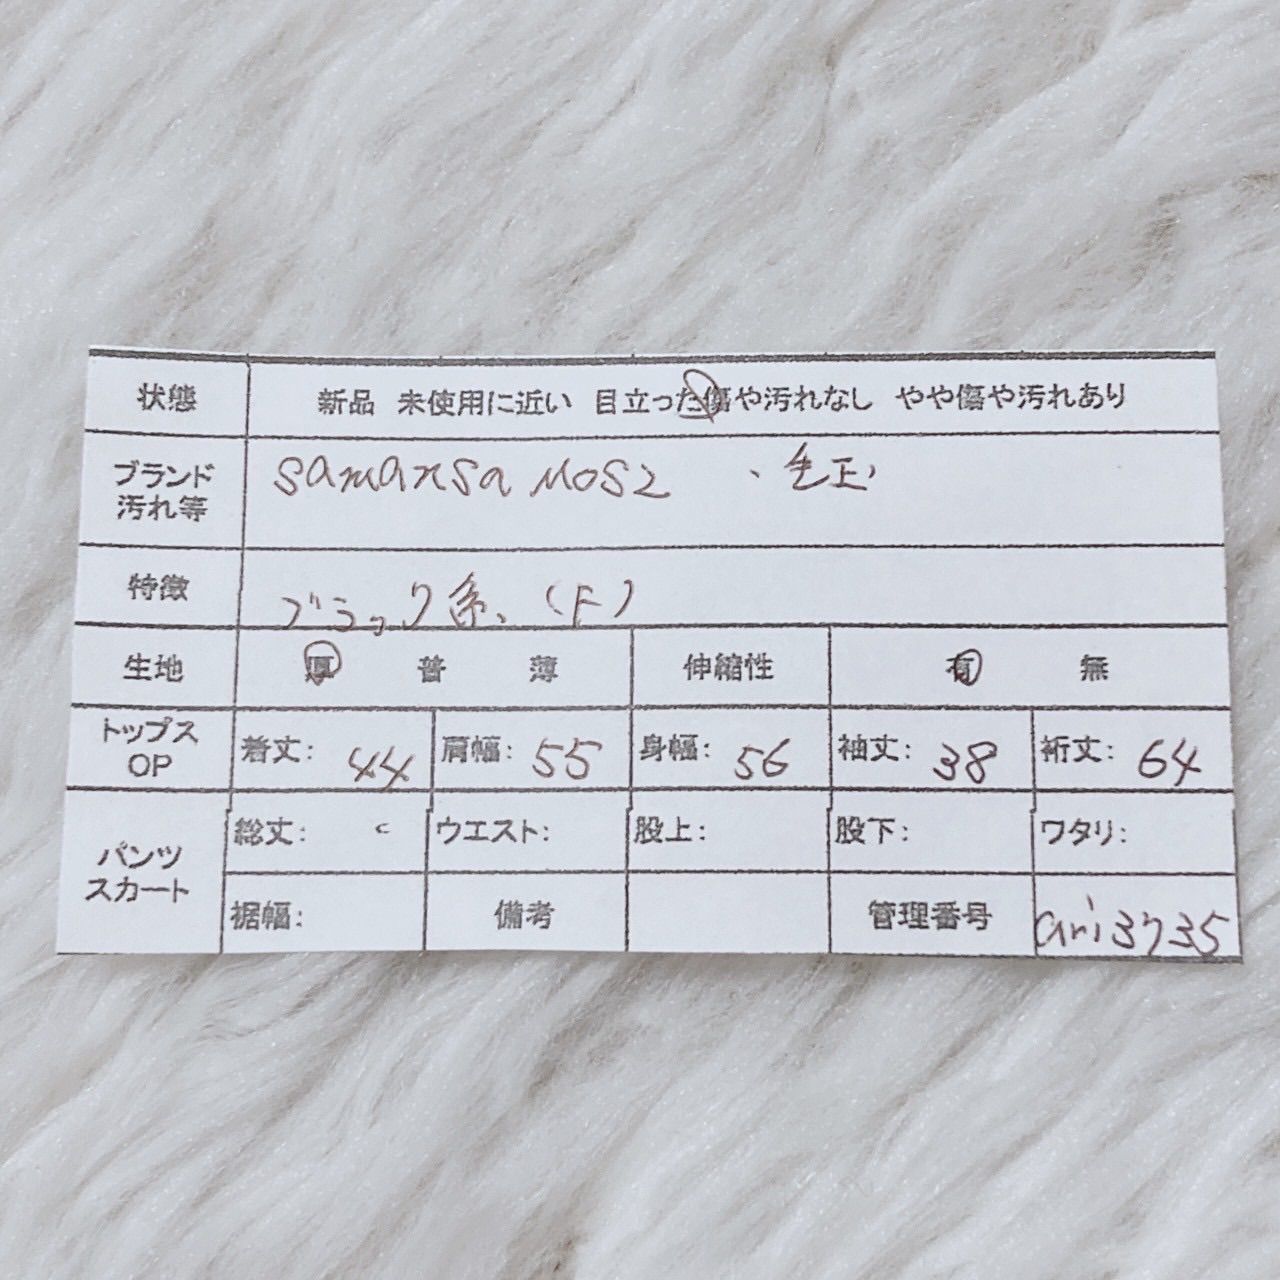 状態 新品 未使用に近い 目立った傷や汚れなし やや傷や汚れあり
ブランド 汚れ等 samansa MOS2 、毛玉
特徴 ブラック系、(F)
生地 厚 普 薄 伸縮性 有 無
トップス OP 着丈: 44 肩幅: 55 身幅: 56 袖丈: 38 裄丈: 64
パンツ スカート 総丈: ウエスト: 股上: 股下: ワタリ:
裾幅: 備考 管理番号 ari3735